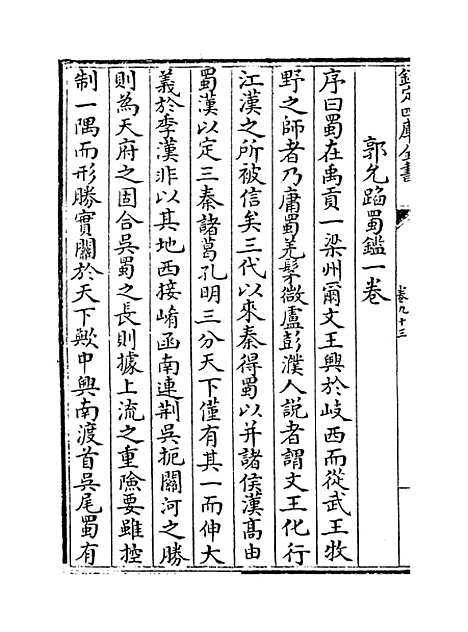 欽定四庫全書
卷九十三
郭允蹈蜀鑑一卷
序曰蜀在禹貢一梁州爾文王興於岐西而從武王牧
野之師者乃庸蜀羌髳微盧彭濮人說者謂文王化行
江漢之所被信矣三代以來秦得蜀以并諸侯漢髙由
蜀漢以定三秦諸葛孔明三分天下僅有其一而伸大
義於季漢非以其地西接崤函南連荆吳扼關河之勝
則為天府之固合吳蜀之長則據上流之重險要雖控
制一隅而形勝實關於天下歟中興南渡首吳尾蜀有